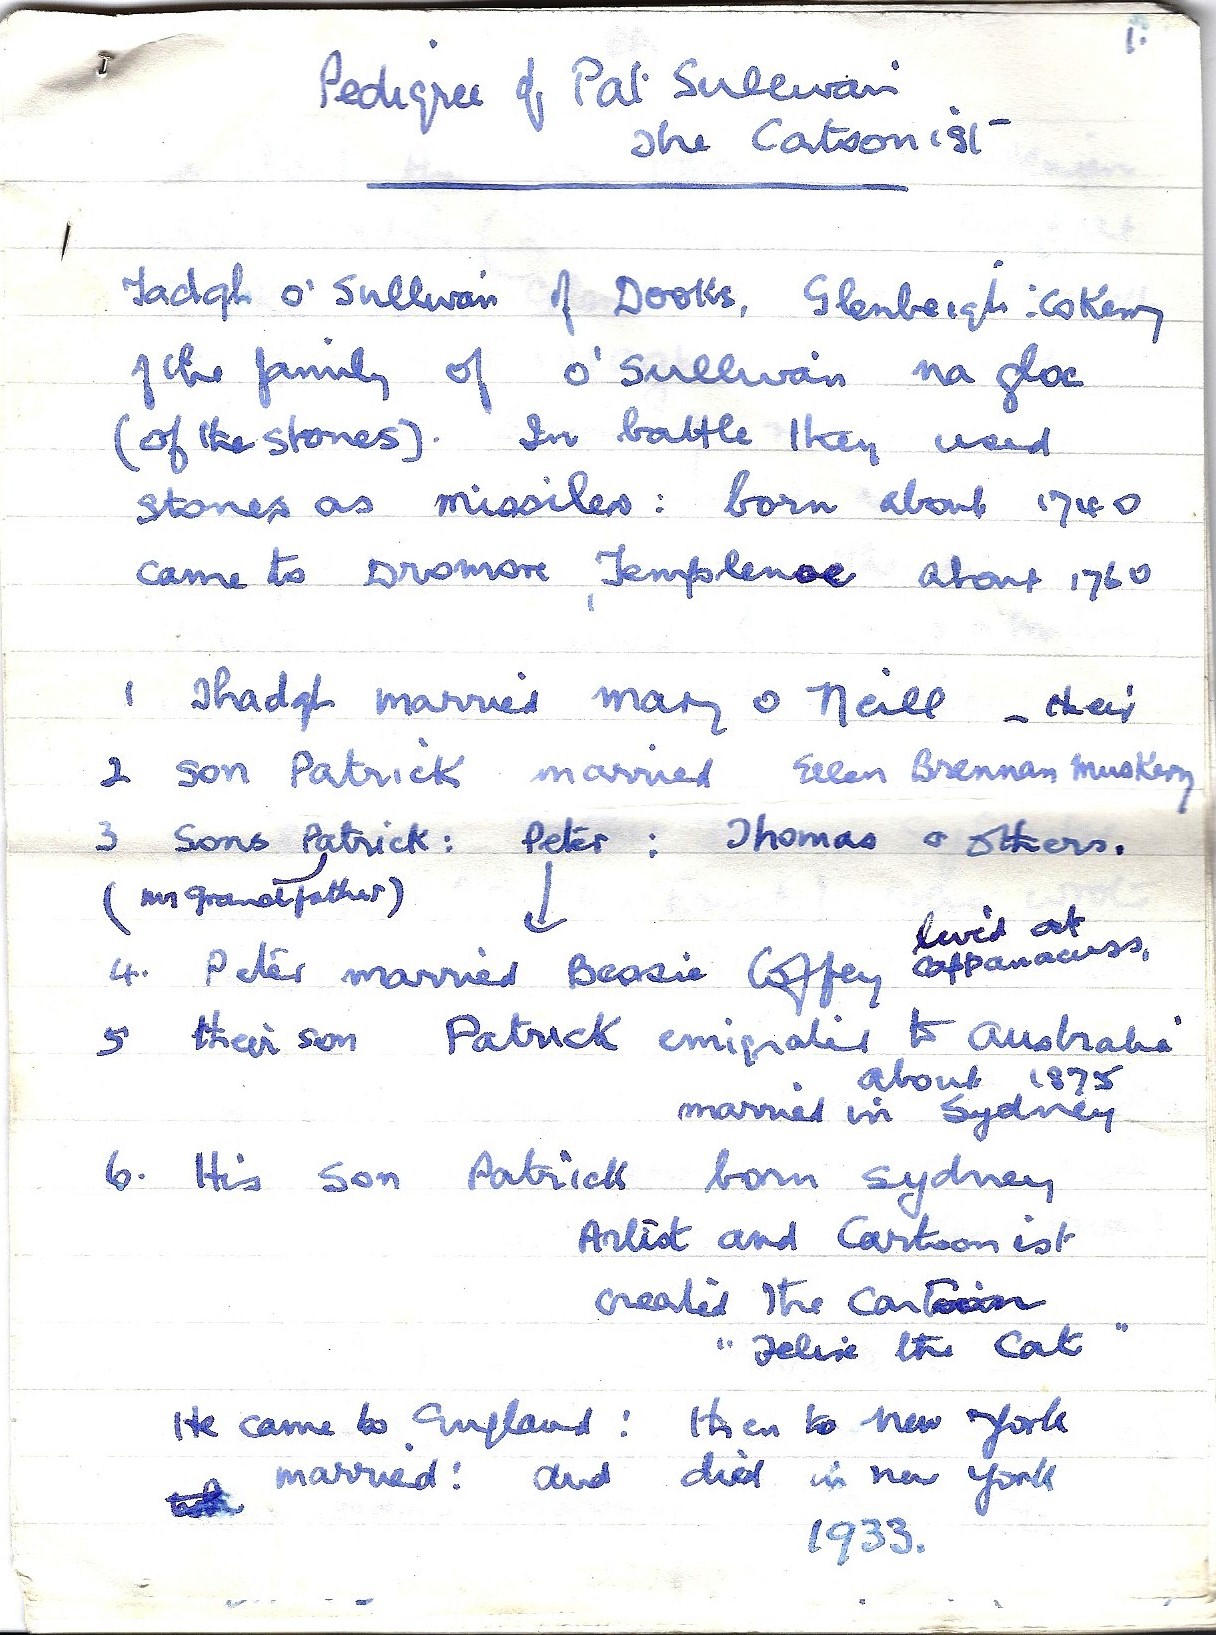 1.
Pedigree of Pat Sullivan
The Cartoonist
Tadgh O'Sullivan of Dooks, Glenbeigh: Co Kerry
of the family of O'Sullivan na gloc
(of the stones). In battle they used
stones as missiles: born about 1740
came to Dromore, Templenoe about 1760
1 Thadgh married Mary O Neill _ their
2 son Patrick married Ellen Brennan Muskerry
3 Sons Patrick: Peter: Thomas & others.
(my Grandfather)
4. Peter married Bessie Coffey lived at
Cappanacuss.
5 their son Patrick emigrated to Australia
about 1875
married in Sydney
6. His son Patrick born Sydney
Artist and Cartoonist
created the Cartoon
"Felix the Cat"
He came to England: then to New York
married: and died in New York
1933.